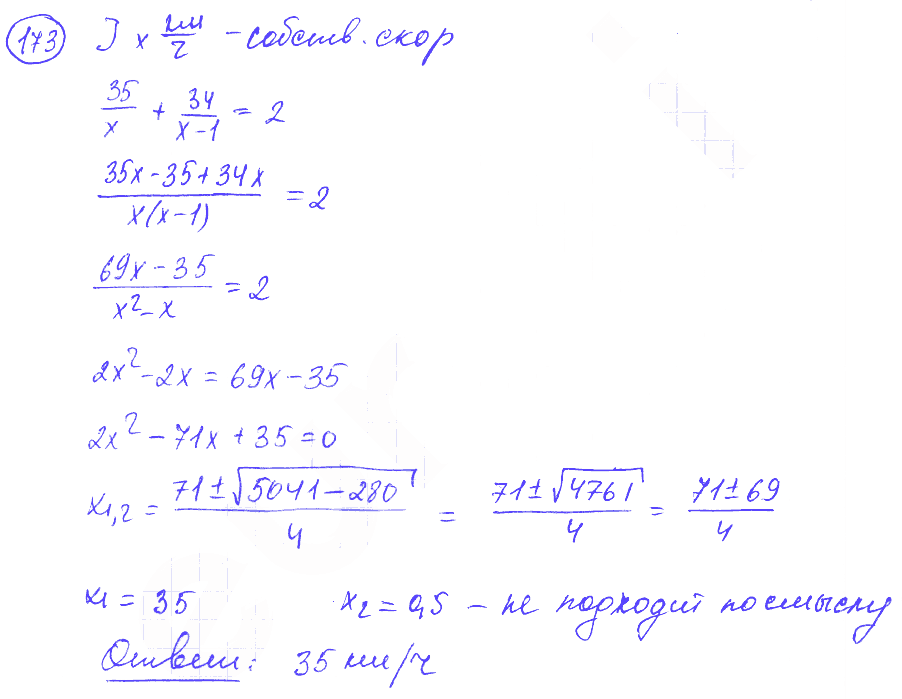 173 J x км/ч - собств. скор
35/x + 34/(x-1) = 2
(35x-35+34x)/(x(x-1)) = 2
(69x-35)/(x²-x) = 2
2x²-2x = 69x-35
2x²-71x+35=0
x1,2 = (71±√(5041-280))/4 = (71±√4761)/4 = (71±69)/4
x1 = 35 x2 = 0,5 - не подходит по смыслу
Ответ: 35 км/ч